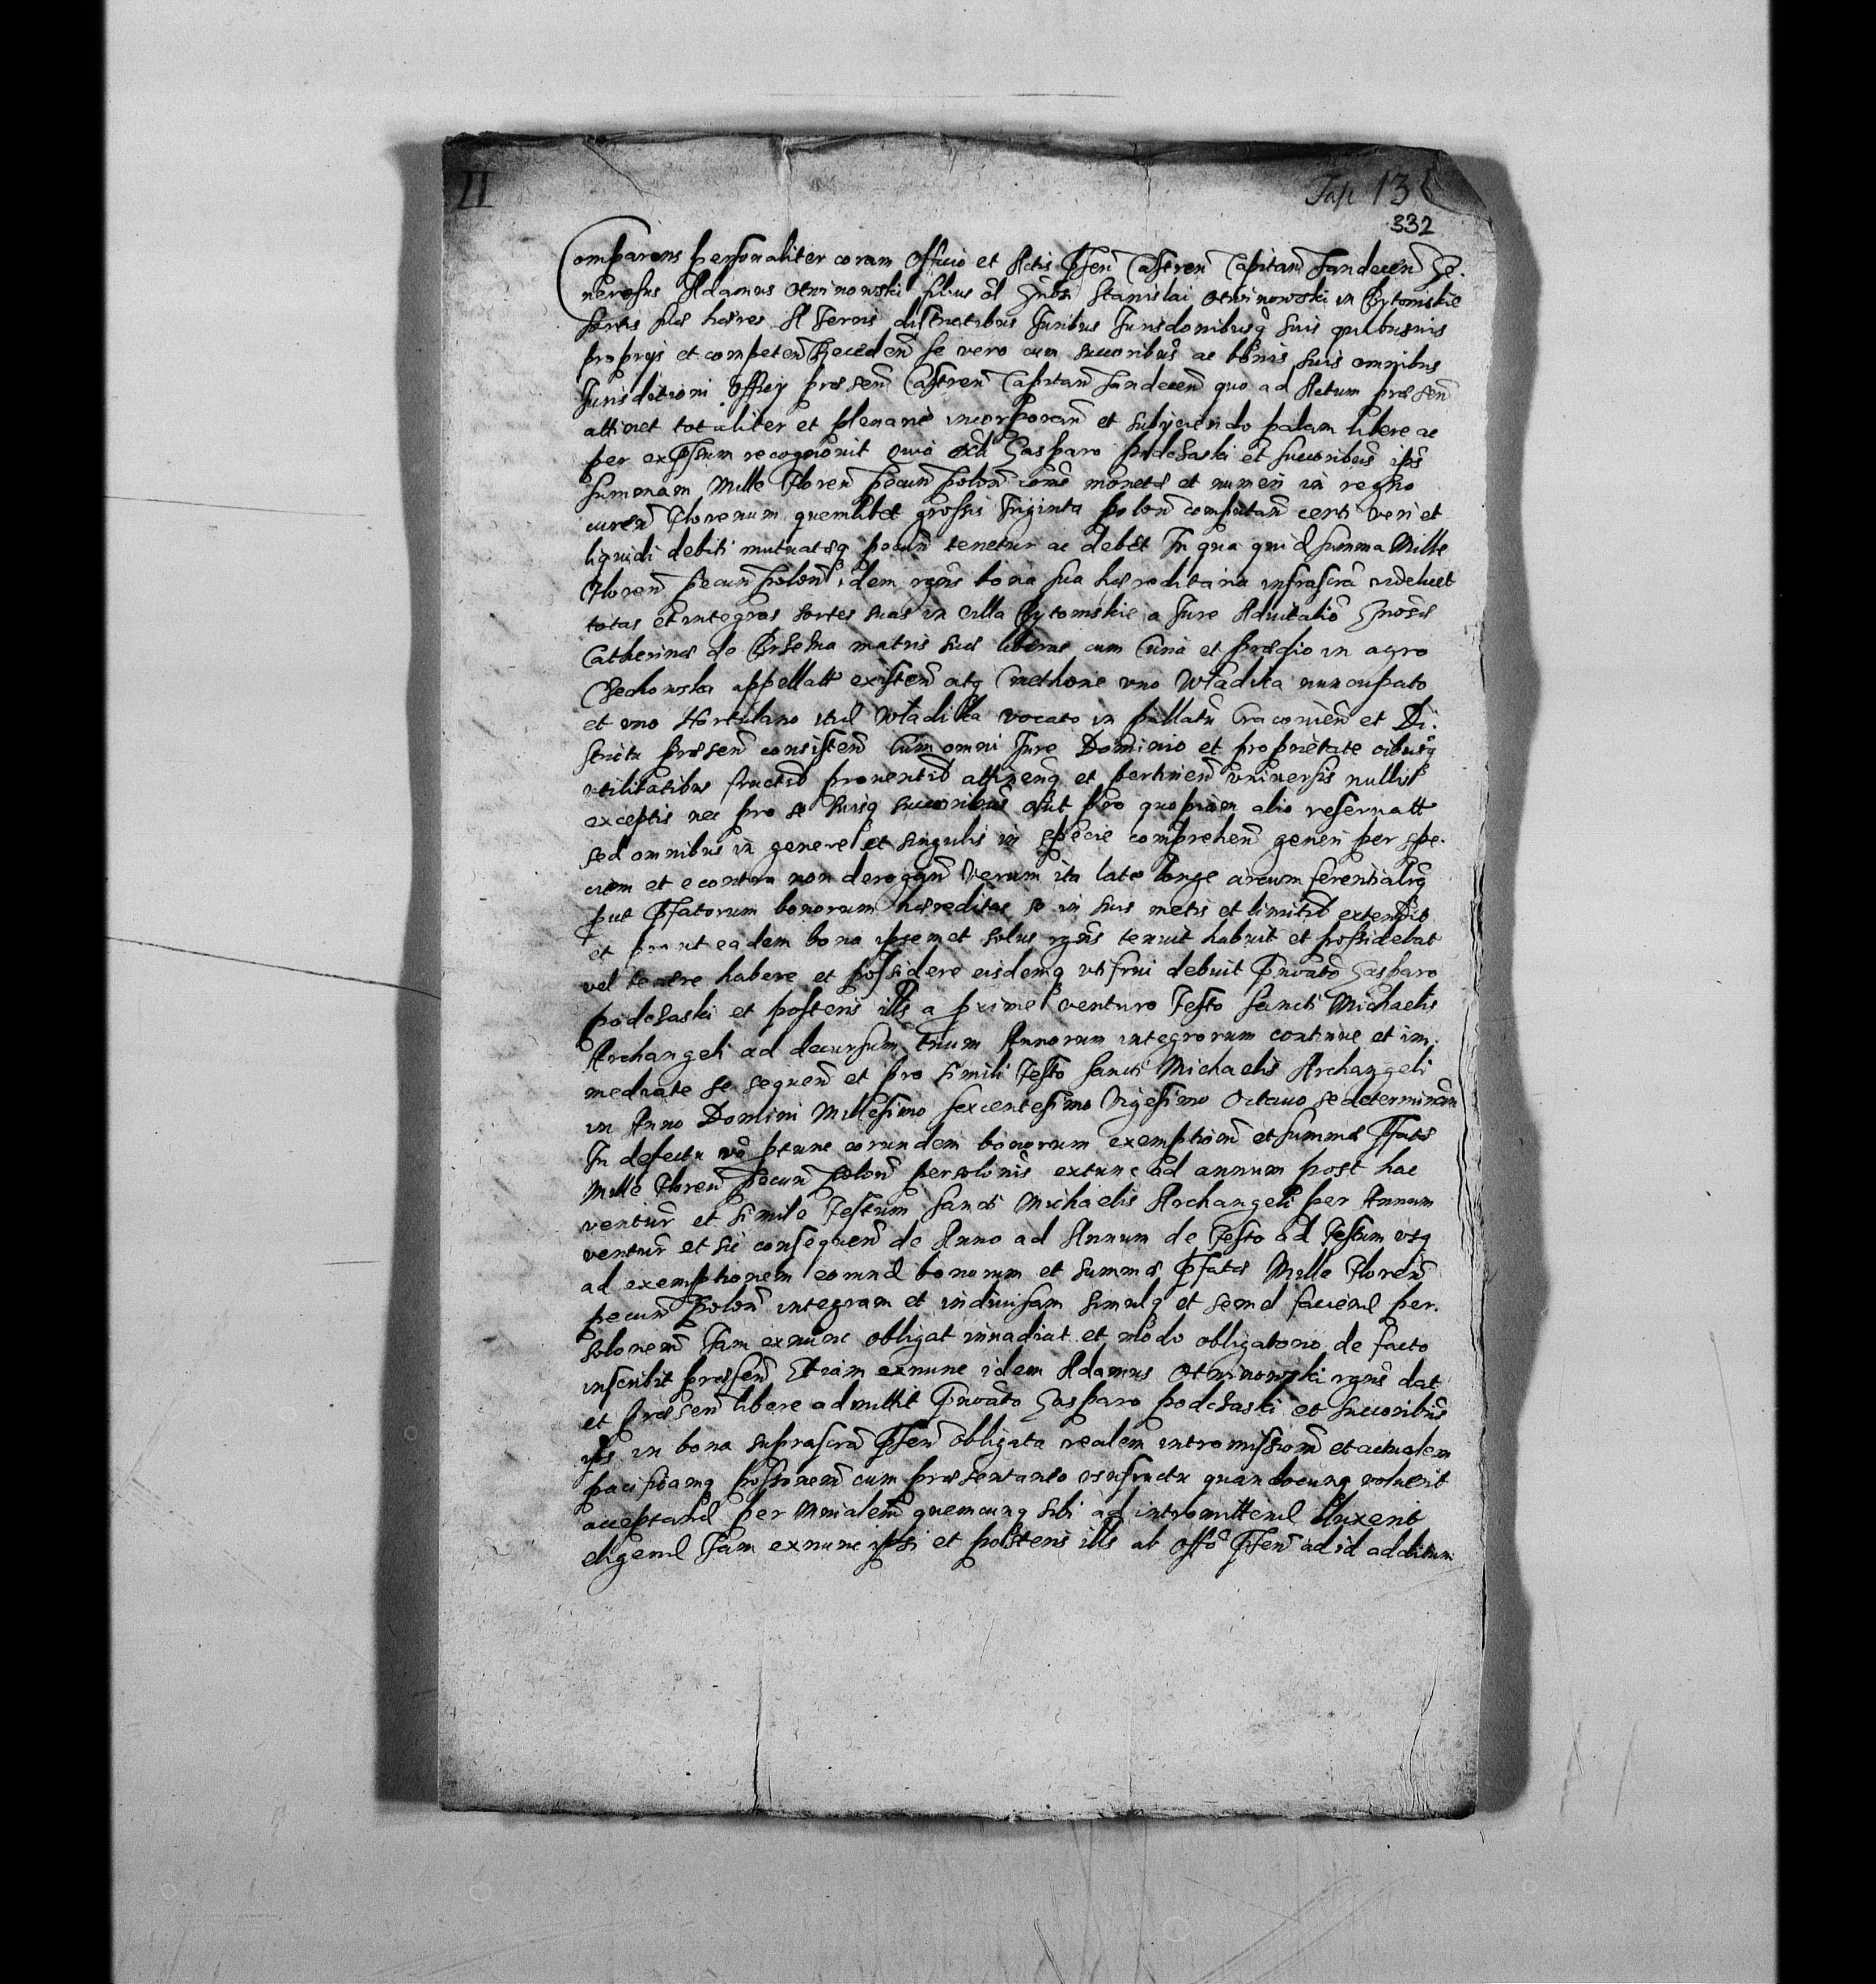 II
Fasc 13
332
Comparens personaliter coram Officio et Actis Pñsen Castren Capitan Sandecen Ge-
nerosus Adamus Otwinowski filius ol Gnsi Stanislai Otwinowski in Bytomskie
sortis suæ hæres A Terris districtibus Juribus Jurisdonibusq suis quibusvis
proprijs et competen Receden se vero cum succoribus ac bonis suis omnibus
Jurisditioni Officij præsen Castren Capitan Sandecen quo ad Actum præsen
attinet totaliter et plenarie incorporan et subijciendo palam libere ac
per expssum recognovit Quia Gasparo Podchaski et succoribus ips
summam Mille Floren pecun polon monetæ et numeri in regno
curen Florenum quemlibet grossis Triginta polon computan certi veri et
liquidi debiti mutuatæq pecun tenetur ac debet In qua quid summa Mille
Floren pecun polon idem rgns bona sua hæreditaria infrascra videlicet
totas et integras sortes suas in villa Bytomskie a Jure Advitalio Gnosæ
Catherinæ de Brzezna matris suæ liberas cum Curia et prædio in agro
Czechowska appellatt existen atq Cmethone uno Władika nuncupato
et uno Hortulano itid Władika vocato in pallatu Cracovien et Di-
strictu præsen consisten Cum omni Jure Dominio et proprietate oibusq
utilitatibus fructib proventib attinenq et pertinen universis nullis
exceptis nec pro se suisq succoribus aut pro quopiam alio reservatt
sed omnibus in genere et singulis in specie comprehen generi per spe-
ciem et econtra non derogan Verum ita late longe circumferentialrq
put Pfatorum bonorum hæreditas se in suis metis et limitib extendit
et prout eadem bona ipsemet solus rgns tenuit habuit et possidebat
vel tenere habere et possidere eisdemq uti frui debuit Pnoato Gasparo
Podchaski et posteris ills a prime venturo Festo Sancti Michaelis
Archangeli ad decursum trium Annorum integrorum continue et im-
mediate se sequen et pro simili Festo Sancti Michaelis Archangeli
in Anno Domini Millesimo sexcentesimo Vigesimo Octavo se determinan
In defectu vo ptunc eorundem bonorum exemptionis et summæ Pfatæ
Mille Floren pecun polon persolonis extunc ad annum post hac
ventur et simile Festum Sancti Michaelis Archangeli per Annum
ventur et sic consequen de Anno ad Annum de Festo ad Festum usq
ad exemptionem eorund bonorum et summæ Pfatæ Mille Floren
pecun polon integram et indivisam simulq et semel faciend per-
solonem Jam exnunc obligat invadiat et modo obligatorio de facto
inscribit præsen Etiam exnunc idem Adamus Otwinowski rgns dat
et præsen libere admittit Pnoato Gasparo Podchaski et succoribus
ips in bona suprascra Pñsen obligata realem intromissionem et actualem
pacificamq possionem cum præsentaneo usufructu quandocunq voluerit
acceptand per Mnialem quemcunq sibi ad intromittend duxerit
eligend Jam exnunc ipsi et posteris ills ab offo Pñsen ad id additum